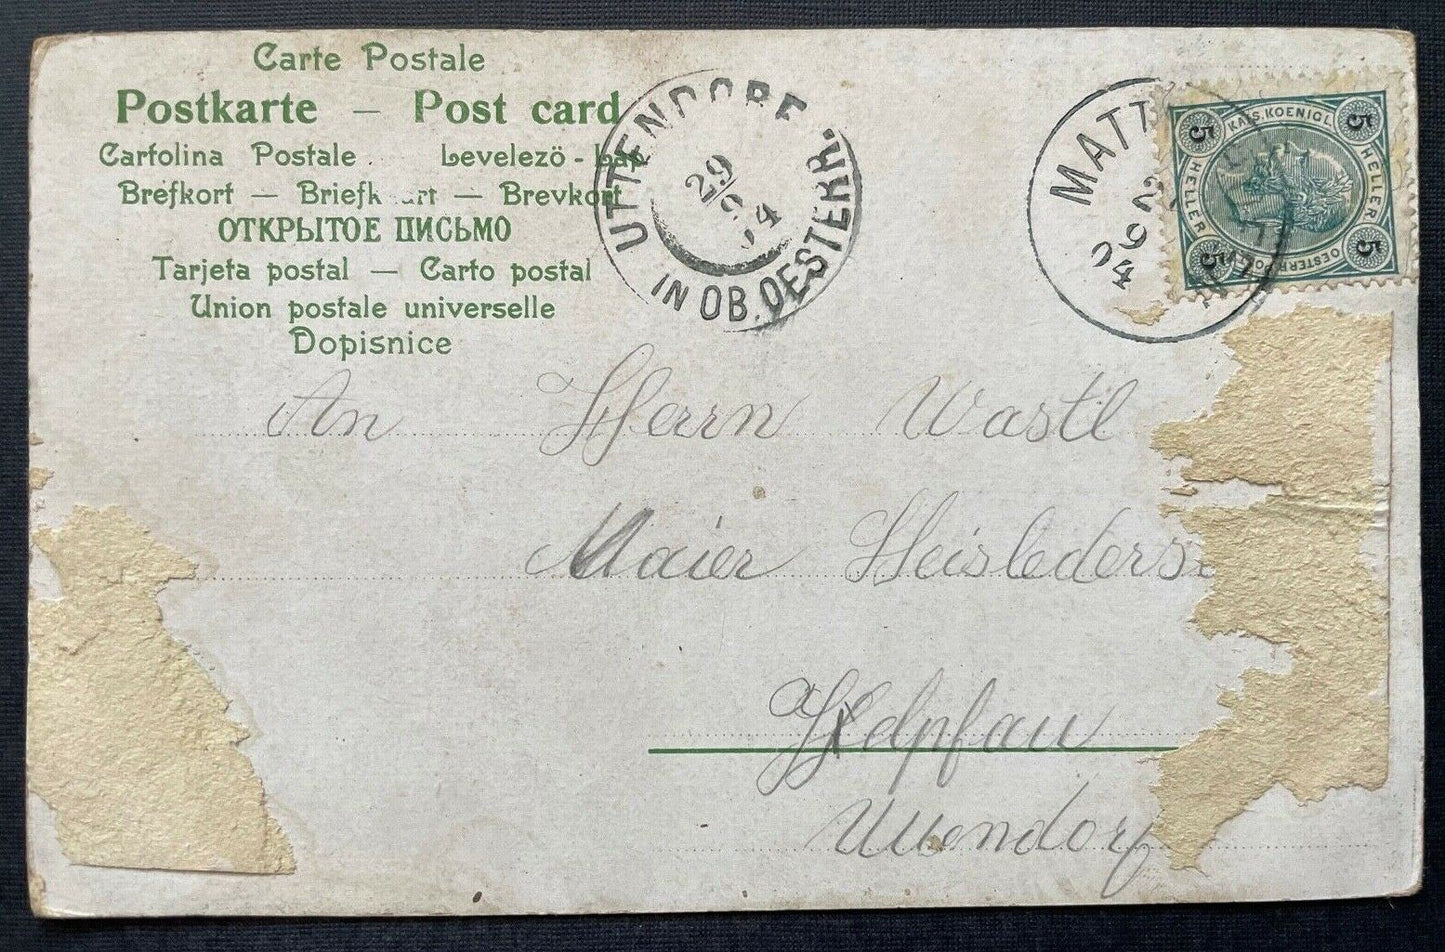 Carte Postale
Postkarte — Post card
Cartolina Postale Levelezö - Lap
Brefkort — Briefk rt — Brevkort
ОТКРЫТОЕ ПИСЬМО
Tarjeta postal — Carto postal
Union postale universelle
Dopisnice
UTTENDORF
IN OB. OESTERR.
29
9
04
MATT
04
5 KAIS. KOENIGL. 5
HELLER HELLER
5 5
An Herrn Wastl
Maier Heisleders
Helpfau
Uttendorf